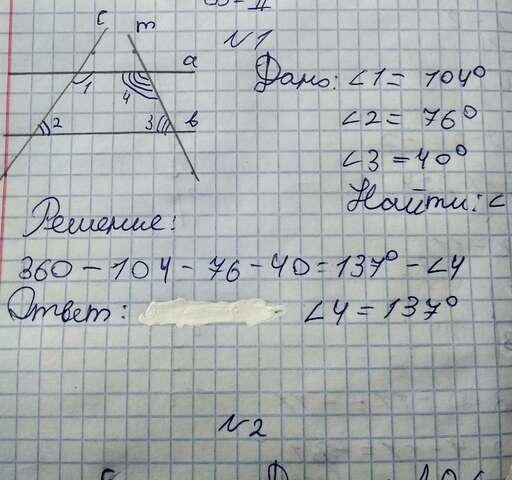 N1
c m a
1 4
2 3 в
Дано: ∠1 = 104°
∠2 = 76°
∠3 = 40°
Найти: ∠
Решение:
360 - 104 - 76 - 40 = 137° - ∠4
Ответ: ∠4 = 137°
N2